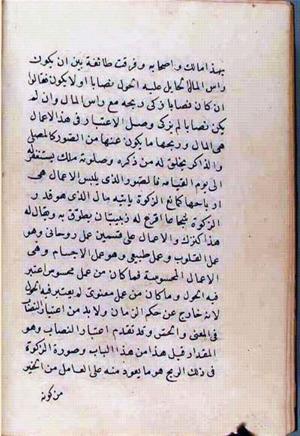 بهذا مالك واصحابه وفرقت طائفة بين ان يكون
راس المال الحايل عليه الحول نصابا او لا يكون فقالوا
ان كان نصابا زكى ربحه مع راس المال وان لم
يكن نصابا لم يزك وصل الاعتبار في هذا الاعمال
هى المال وربحها ما يكون عنها من الصور كالمصلى
والذاكر يخلق له من ذكره وصلوته ملك يستغفر له
الى يوم القيامة فالصور الذى يلبس الاعمال هى
ارباحها كمانع الزكوة ياتيه مال الذى هو قدر
الزكوة شجاعا اقرع له زبيبتان يطوق به ويقال له
هذا كنزك والاعمال على قسمين عمل روحانى وهو
عمل القلوب وعمل طبيعى وهو عمل الاجسام وهى
الاعمال المحسوسة فما كان من عمل محسوس اعتبر
فيه الحول وما كان من عمل معنوى لم يعتبر فيه الحول
لانه خارج عن حكم الزمان ولا بد من اعتبار النصاب
فى المعنى والحس وقد تقدم اعتبار النصاب وهو
المقدار قبل هذا من هذا الباب وصورة الزكوة
فى ذلك الربح هو ما يعود منه على العامل من الخير
من كونه